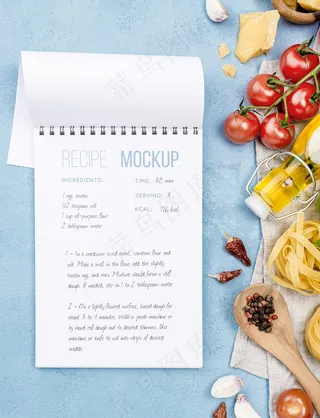 RECIPE MOCKUP
INGREDIENTS:
1 egg, beaten
1/2 teaspoon salt
1 cup all-purpose flour
2 tablespoons water
TIME: 30 min
SERVING: 3
KCAL: 176 kcal
1 - In a medium sized bowl, combine flour and
salt. Make a well in the flour, add the slightly
beaten egg, and mix. Mixture should form a stiff
dough. If needed, stir in 1 to 2 tablespoons water
2 - On a lightly floured surface, knead dough for
about 3 to 4 minutes. With a pasta machine or
by hand roll dough out to desired thinness. Use
machine or knife to cut into strips of desired
width.